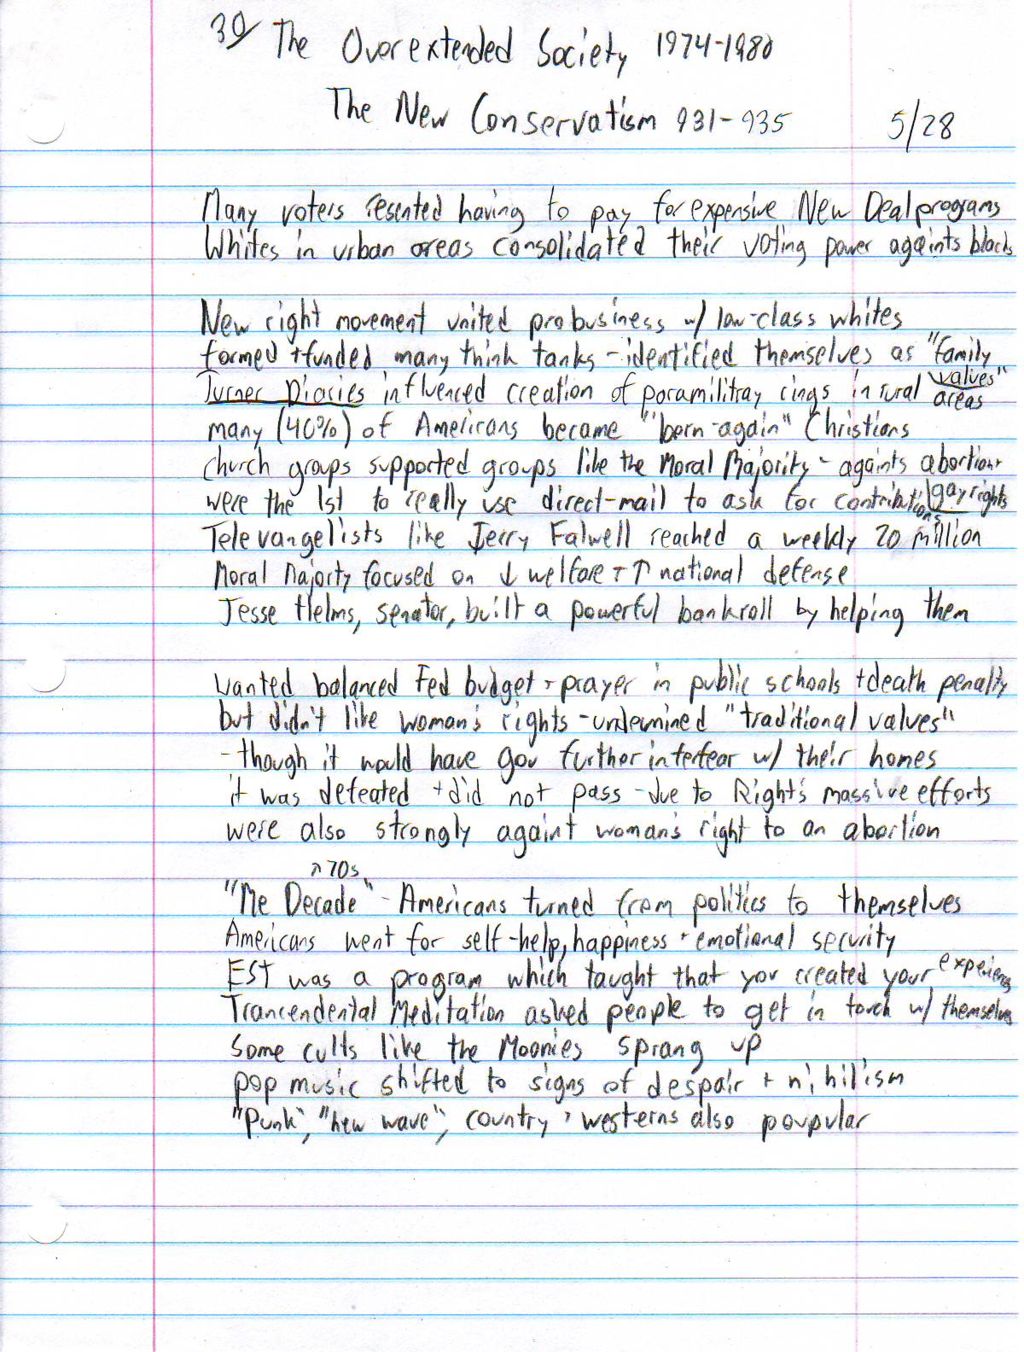 30 The Overextended Society 1974-1980
The New Conservatism 931-935 5/28
Many voters resented having to pay for expensive New Deal programs
Whites in urban areas consolidated their voting power againts blacks
New right movement united probusiness w/ low-class whites
formed + funded many think tanks - identified themselves as "family values"
Turner Diaries influenced creation of paramilitray rings in rural areas
many (40%) of Americans became "born-again" Christians
Church groups supported groups like the Moral Majority - againts abortion + gay rights
were the 1st to really use direct-mail to ask for contributions
Televangelists like Jerry Falwell reached a weekly 20 million
Moral Majorty focused on ↓ welfare + ↑ national defense
Jesse Helms, senator, built a powerful bankroll by helping them
Wanted balanced Fed budget + prayer in public schools + death penalty
but didn't like woman's rights - undermined "traditional values"
- though it would have gov further interfear w/ their homes
it was defeated + did not pass - due to Right's massive efforts
were also strongly againt woman's right to an abortion
70s
"Me Decade" - Americans turned from politics to themselves
Americans went for self-help, happiness + emotional security
EST was a program which taught that you created your experiences
Trancendental Meditation asked people to get in touch w/ themselves
Some cults like the Moonies sprang up
pop music shifted to signs of despair + nihilism
"Punk", "new wave", country + westerns also poupular